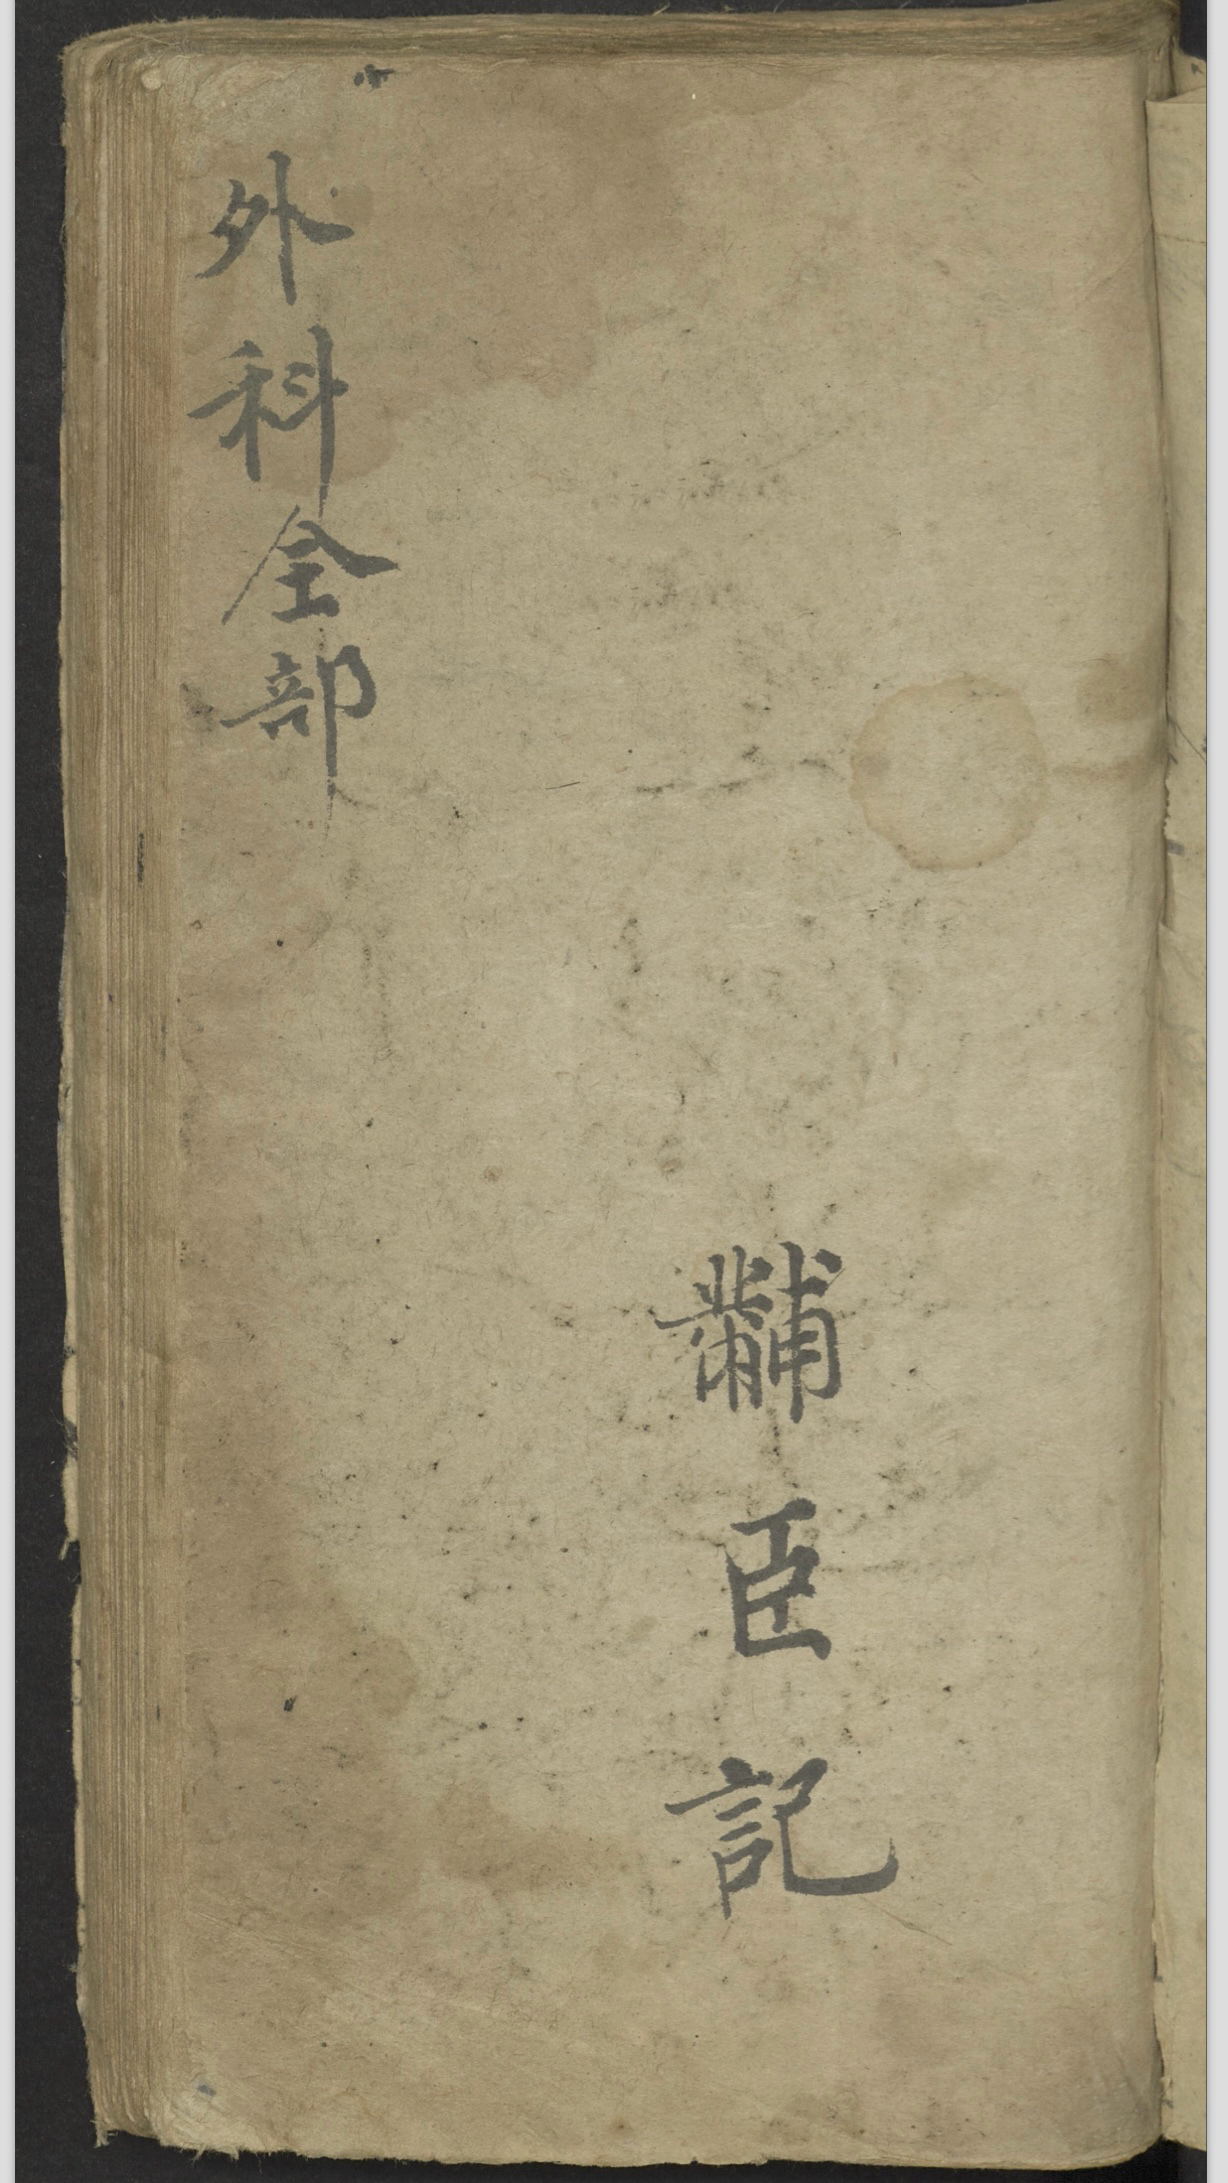 外科全部
黼臣記